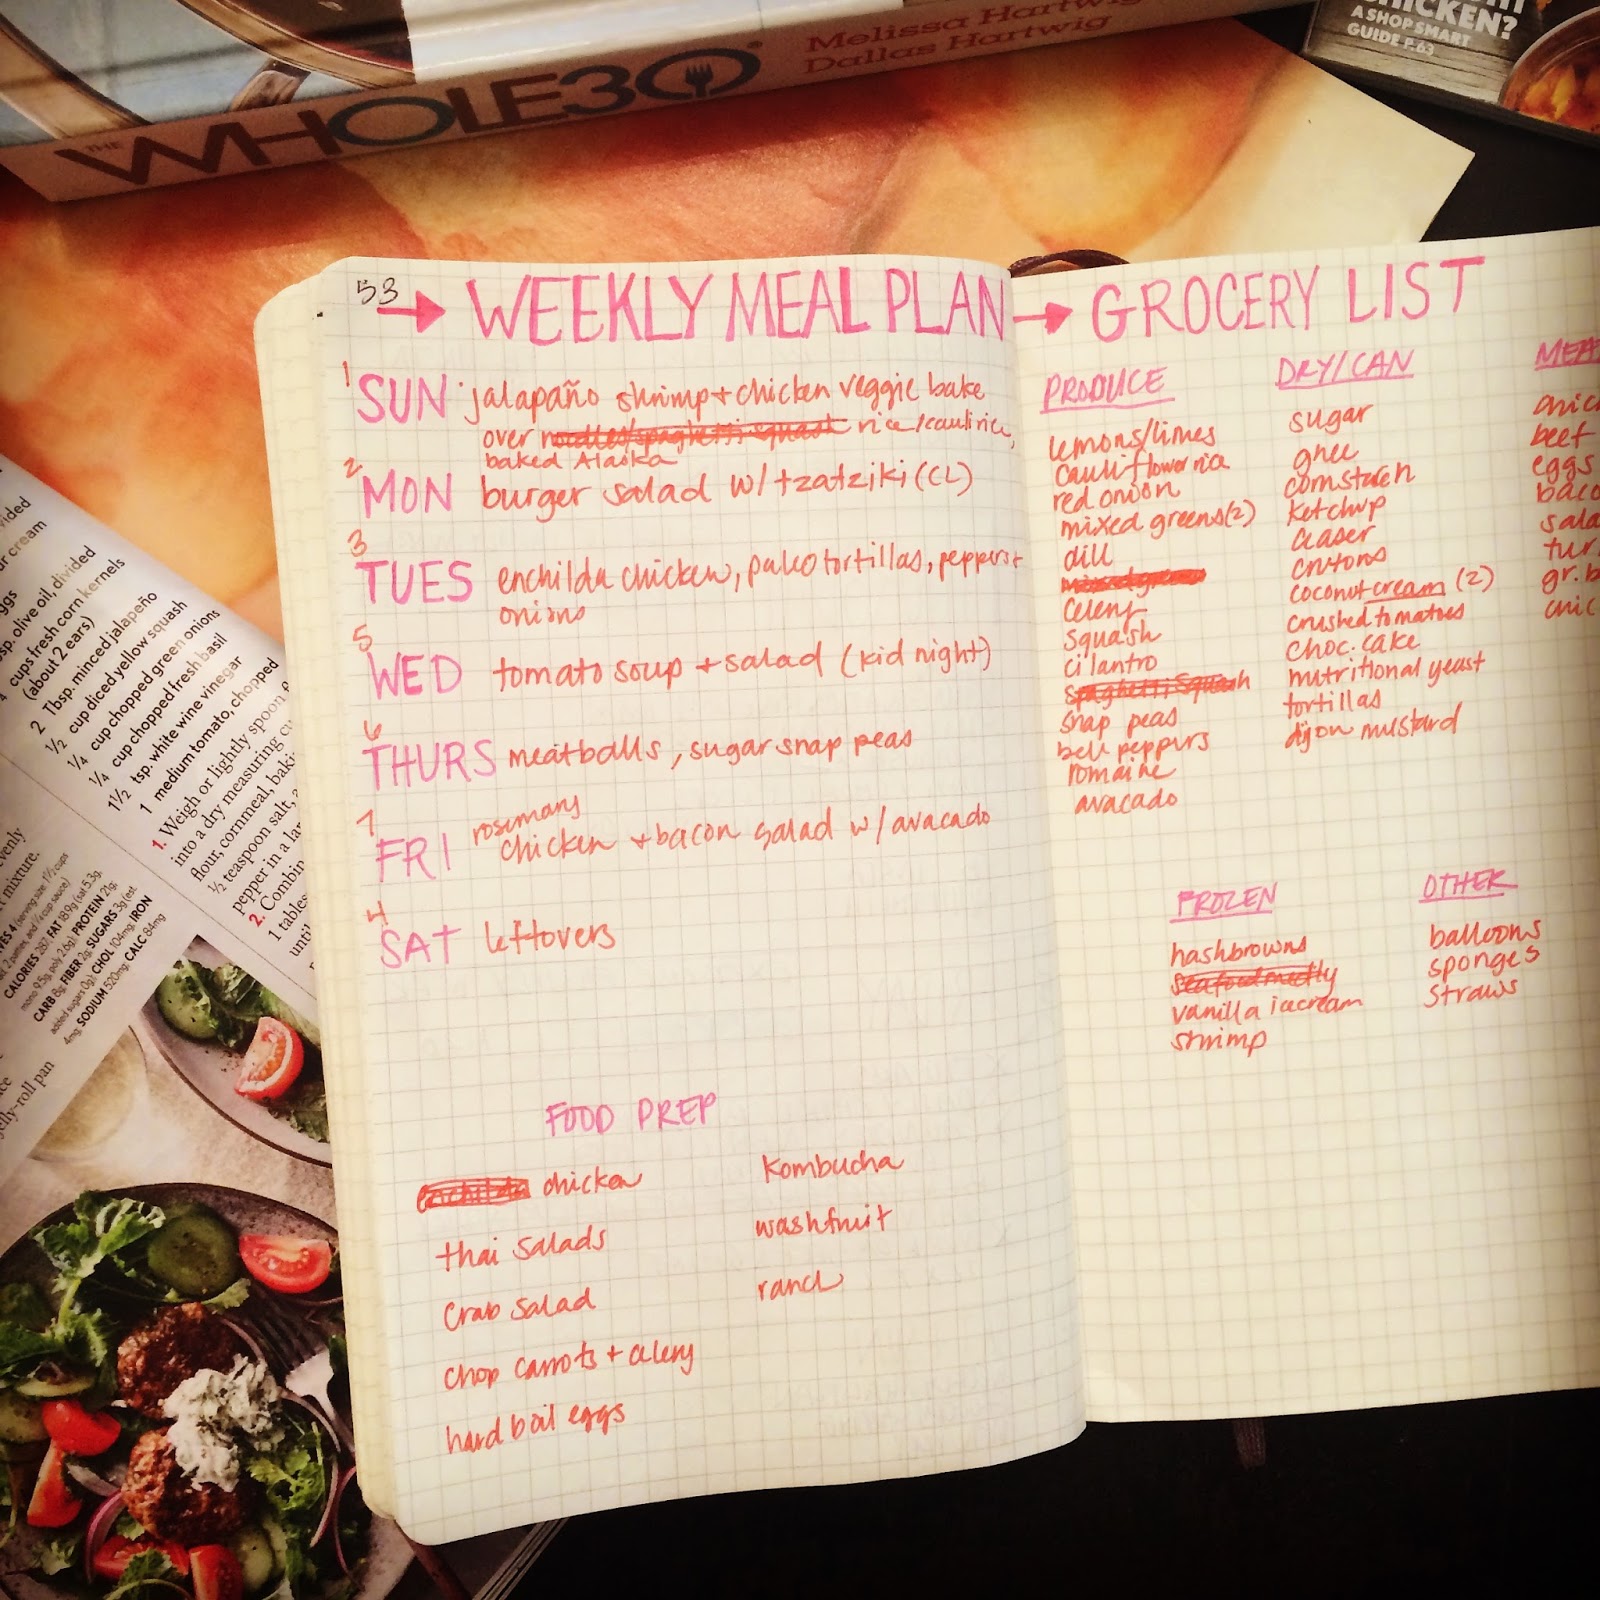 THE WHOLE30®
Melissa Hartwig
Dallas Hartwig
CHICKEN?
A SHOP SMART
GUIDE P.63
53
→ WEEKLY MEAL PLAN
1
SUN jalapaño shrimp + chicken veggie bake
over noodles/spaghetti squash rice/caulirice,
baked Alaska
2
MON burger salad w/ tzatziki (CL)
3
TUES enchilda chicken, paleo tortillas, peppers +
onions
5
WED tomato soup + salad (kid night)
6
THURS meatballs, sugar snap peas
7
FRI rosemary
chicken + bacon salad w/ avacado
4
SAT leftovers
FOOD PREP
enchilda chicken
thai salads
crab salad
chop carrots + celery
hard boil eggs
Kombucha
wash fruit
ranch
→ GROCERY LIST
PRODUCE
lemons/limes
cauliflower rice
red onion
mixed greens (2)
dill
mixed greens
celery
squash
cilantro
spaghetti squash
snap peas
bell peppers
romaine
avacado
DRY/CAN
sugar
ghee
cornstarch
ketchup
ceaser
crutons
coconut cream (2)
crushed tomatoes
choc. cake
nutritional yeast
tortillas
dijon mustard
MEA
chic
beef
eggs
baco
sala
tur
gr. b
chic
FROZEN
hashbrowns
seafood medly
vanilla icecream
shrimp
OTHER
balloons
sponges
straws
vided
ur cream
ggs
bsp. olive oil, divided
cups fresh corn kernels
(about 2 ears)
2 Tbsp. minced jalapeño
1/2 cup diced yellow squash
1/4 cup chopped green onions
1/4 cup chopped fresh basil
1 1/2 tsp. white wine vinegar
1 medium tomato, chopped
1. Weigh or lightly spoon
into a dry measuring cu
flour, cornmeal, baki
1/2 teaspoon salt,
pepper in a lar
2. Combin
1 tables
until
evenly
t mixture.
VES 4 (serving size: 1 1/2 cups
CALORIES 287; FAT 18.9g (sat 5.3g,
mono 9.5g, poly 2.6g); PROTEIN 21g;
CARB 8g; FIBER 2g; SUGARS 3g (est.
added sugars 0g); CHOL 104mg; IRON
4mg; SODIUM 520mg; CALC 84mg
jelly-roll pan